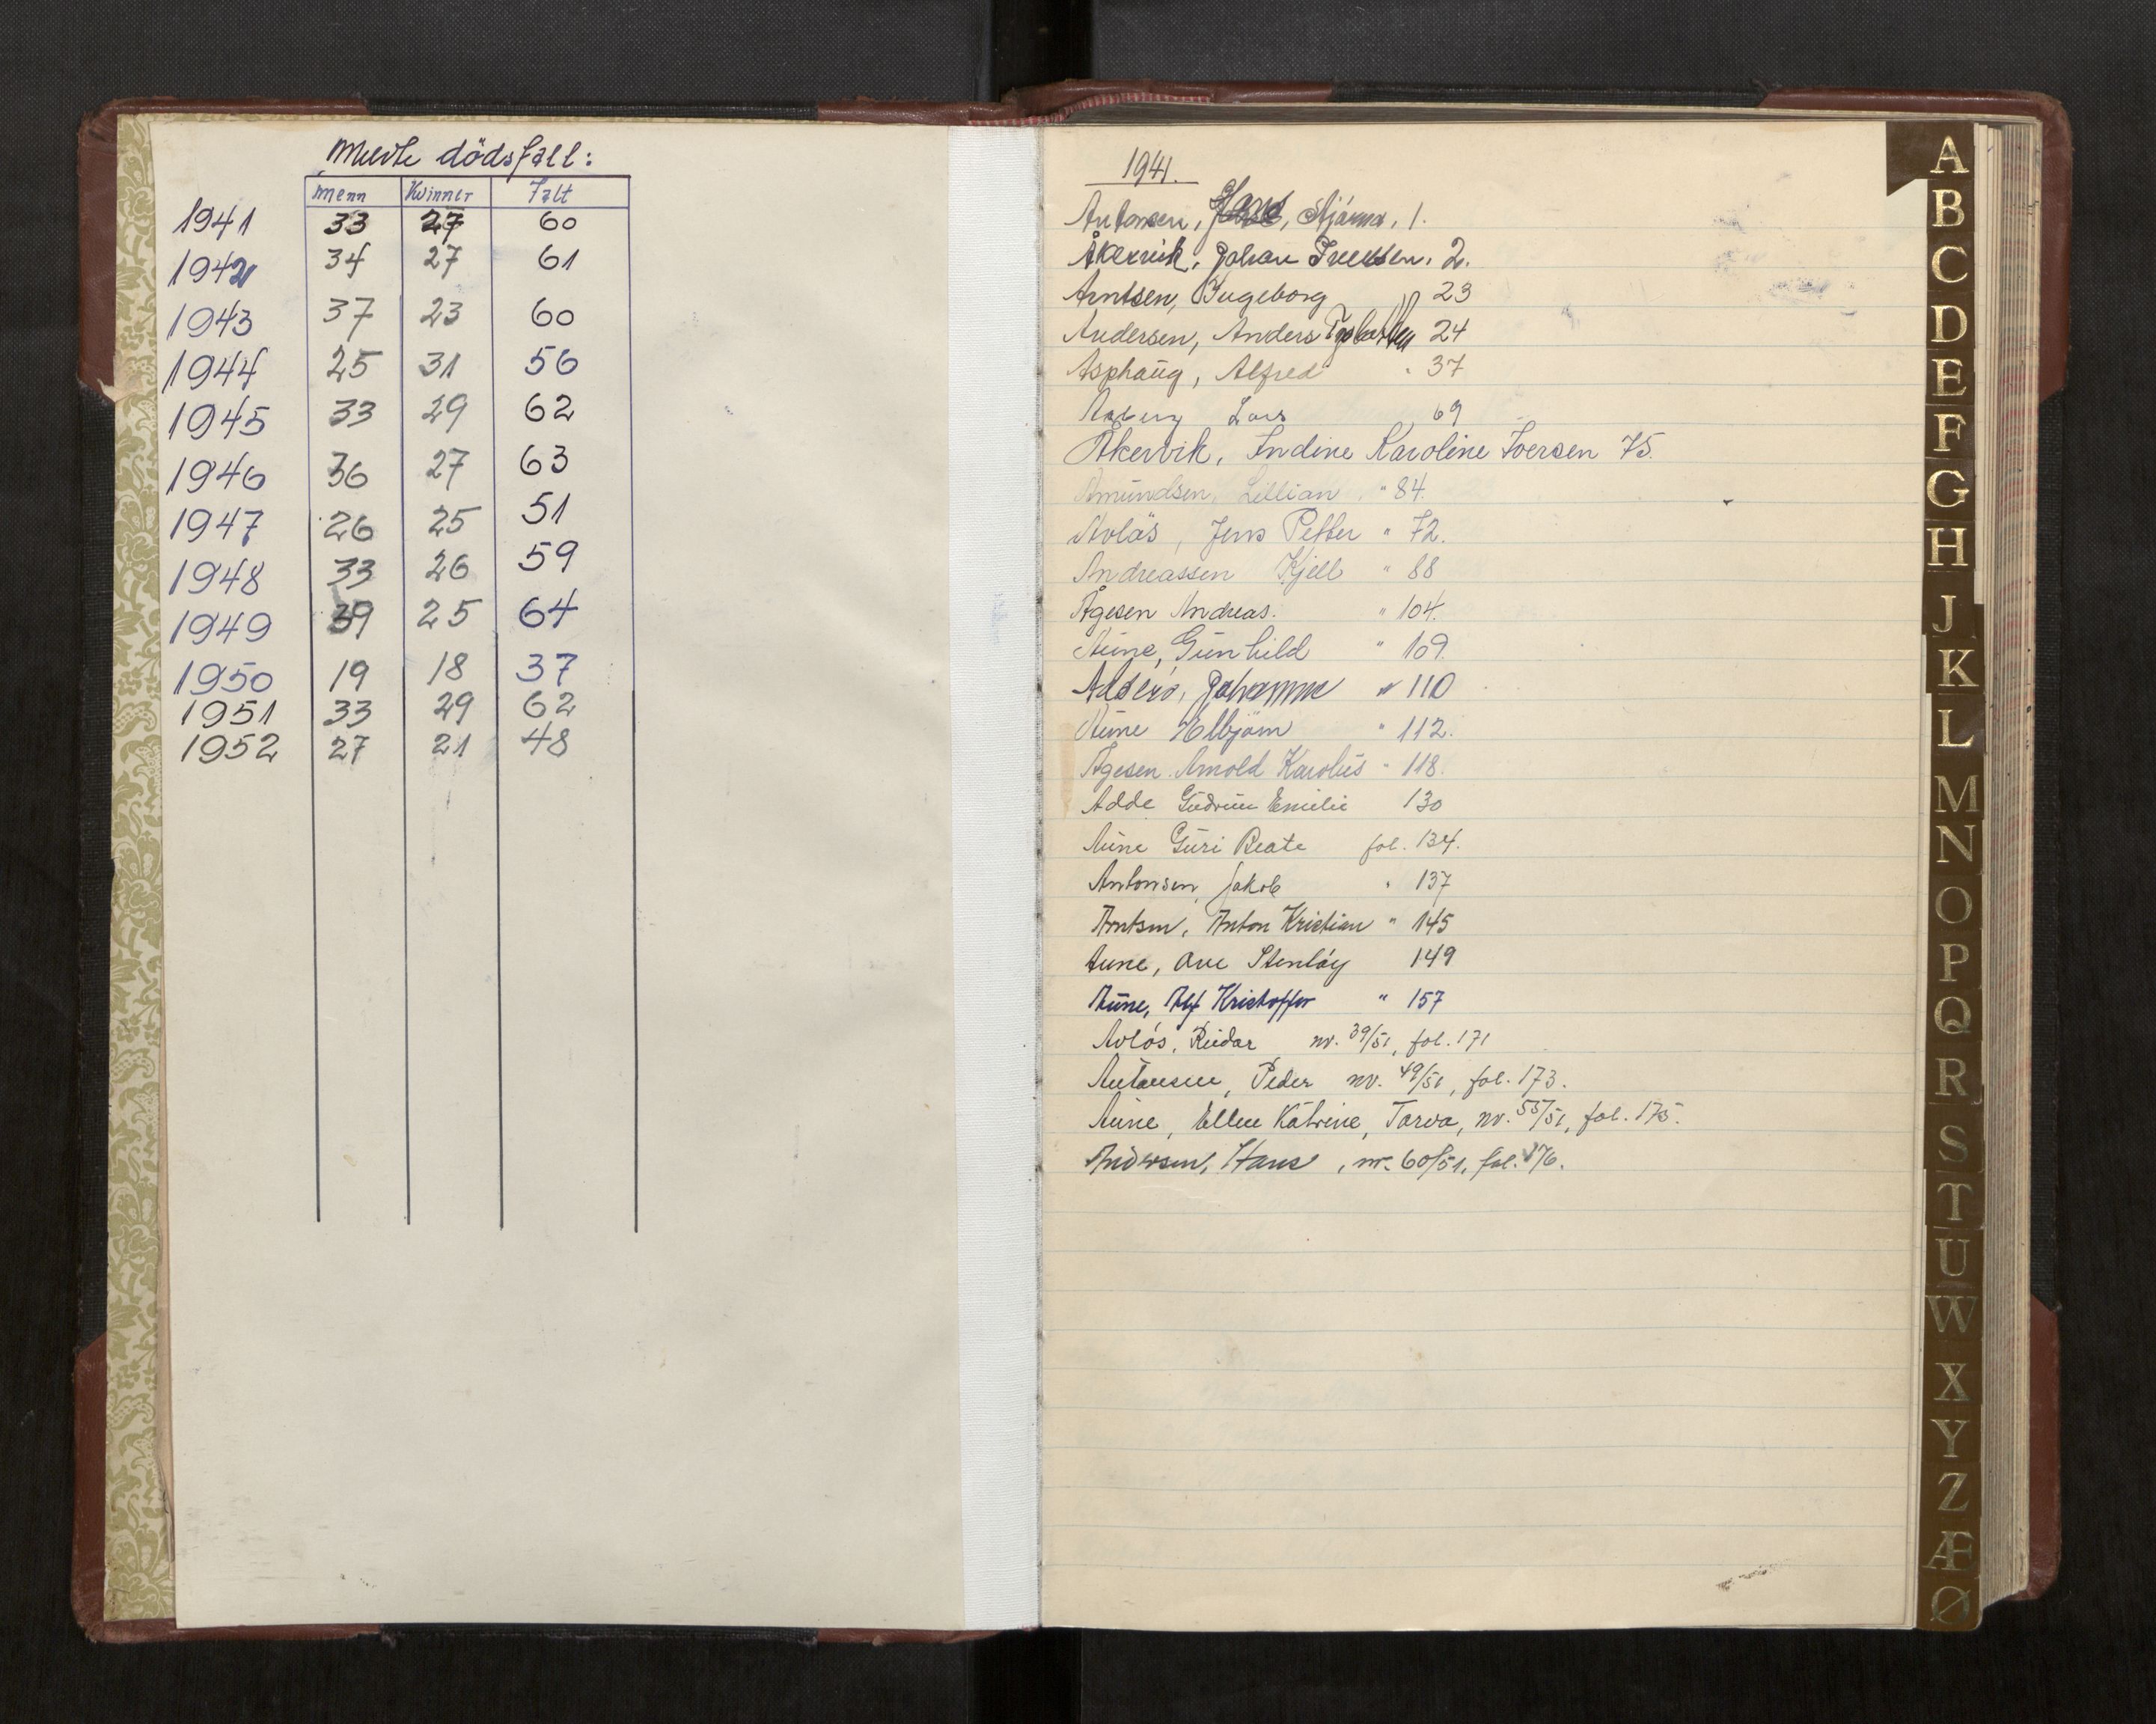 Meldte dödsfall:
Menn Kvinner I alt
1941 33 27 60
1942 34 27 61
1943 37 23 60
1944 25 31 56
1945 33 29 62
1946 36 27 63
1947 26 25 51
1948 33 26 59
1949 39 25 64
1950 19 18 37
1951 33 29 62
1952 27 21 48
1941.
Antonsen, 1.
Åkervik, Johan Iversen, 2.
Arntsen, Ingeborg 23
Andersen, Anders 24
Asphaug, Alfred " 37
Lars 69
Åkervik, Indine Karoline Iversen 75.
Amundsen, Lillian, " 84.
Avlös, Jens Petter " 72.
Andreassen Kjell " 88
Ågesen Andreas. " 104.
Aune, Gunhild " 109.
Johanna " 110
Aune Elbjörn " 112.
Ågesen Arnold Karolius " 118.
Adde Gudrun Emilie 130
Aune Guri Beate fol. 134.
Antonsen, Jakob " 137
Arntsen, Anton Kristian " 145
Aune, Ove Stenløy 149
Aune, Alf Kristoffer " 157
Avlós, Reidar nr. 39/51, fol. 171
Antonsen, Peder nr. 49/51, fol. 173.
Aune, Ellen Katrine, Tarva, nr. 55/51, fol. 175.
Andersen, Hans, nr. 60/51, fol. 176.
A
B
C
D
E
F
G
H
J
K
L
M
N
O
P
Q
R
S
T
U
W
X
Y
Z
Æ
Ø